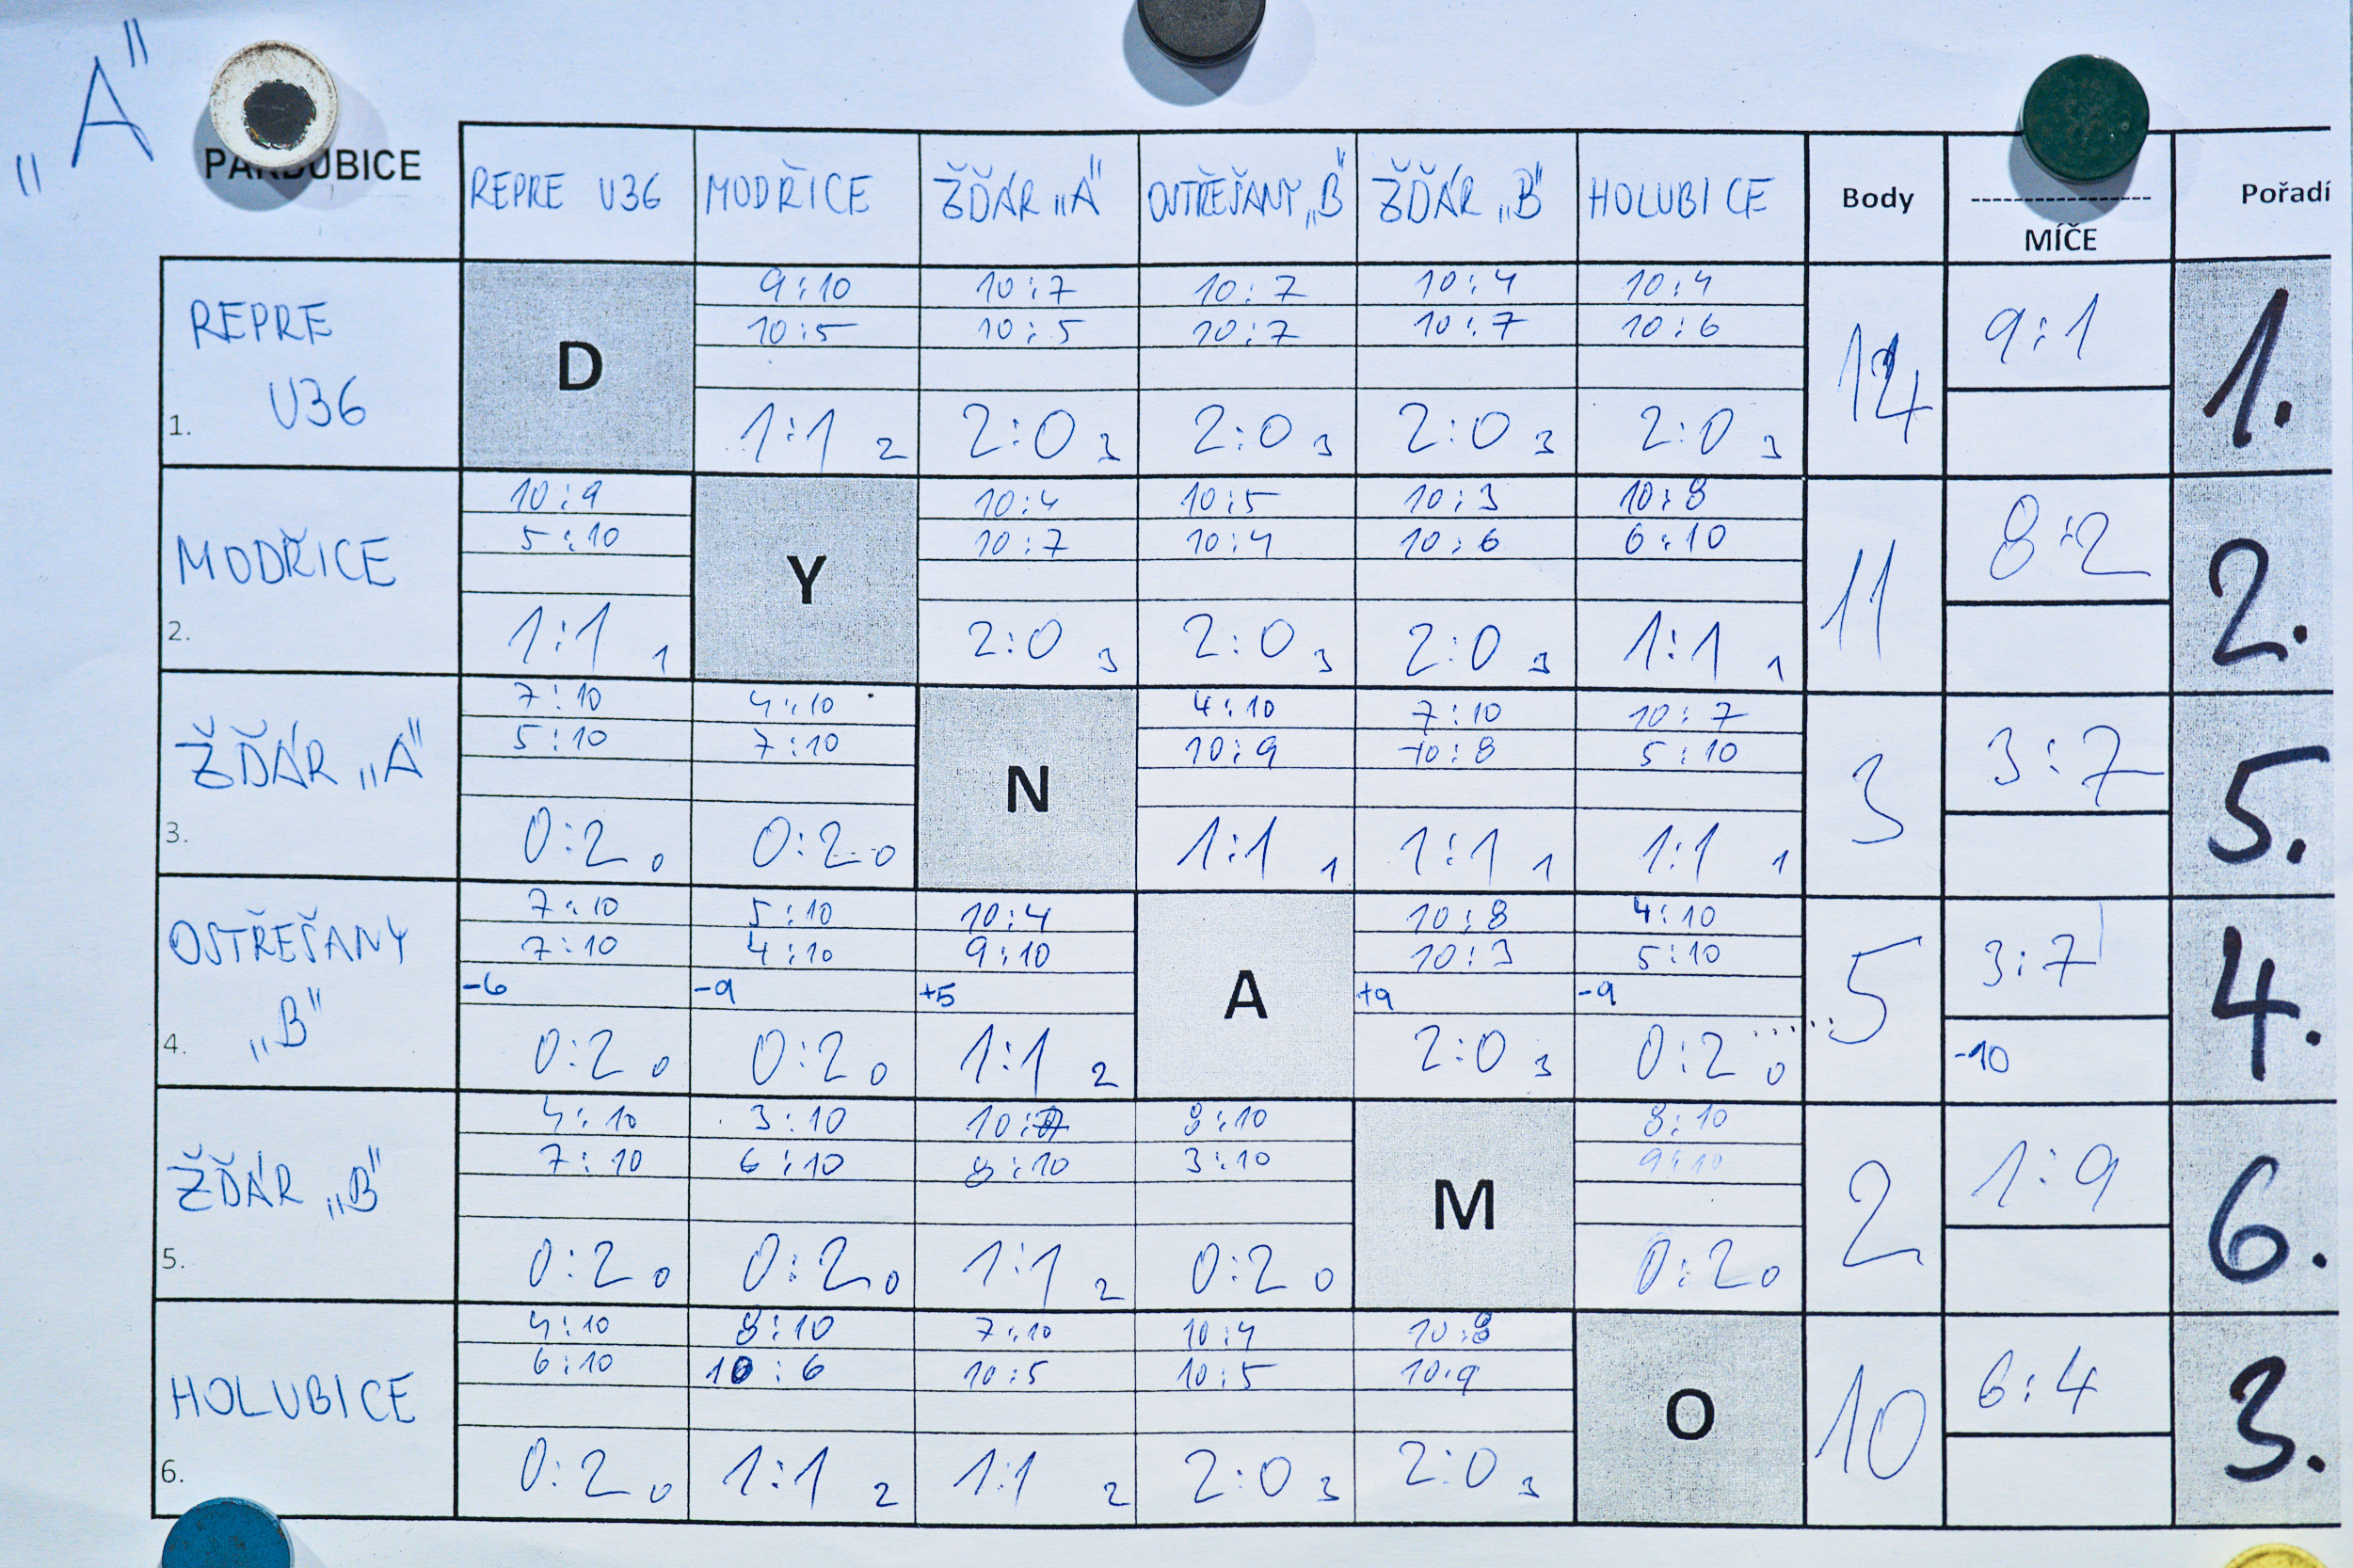 „A"
PARDUBICE
REPRE U36 MODŘICE ŽĎÁR „A" OSTŘEŠANY „B" ŽĎÁR „B" HOLUBICE Body MÍČE Pořadí
9:10 10:7 10:7 10:4 10:4
10:5 10:5 10:7 10:7 10:6
1. REPRE U36 D 1:1 2 2:0 3 2:0 3 2:0 3 2:0 3 14 9:1 1.
10:9 10:4 10:5 10:3 10:8
5:10 10:7 10:4 10:6 6:10
2. MODŘICE 1:1 1 Y 2:0 3 2:0 3 2:0 3 1:1 1 11 8:2 2.
7:10 4:10 4:10 7:10 10:7
5:10 7:10 10:9 10:8 5:10
3. ŽĎÁR „A" 0:2 0 0:2 0 N 1:1 1 1:1 1 1:1 1 3 3:7 5.
7:10 5:10 10:4 10:8 4:10
7:10 4:10 9:10 10:3 5:10
-6 -9 +5 +9 -9
4. OSTŘEŠANY „B" 0:2 0 0:2 0 1:1 2 A 2:0 3 0:2 0 5 3:7 -10 4.
4:10 3:10 8:10 8:10
7:10 6:10 8:10 3:10 9:10
5. ŽĎÁR „B" 0:2 0 0:2 0 1:1 2 0:2 0 M 0:2 0 2 1:9 6.
4:10 8:10 7:10 10:4 10:8
6:10 10:6 10:5 10:5 10:9
6. HOLUBICE 0:2 0 1:1 2 1:1 2 2:0 3 2:0 3 O 10 6:4 3.